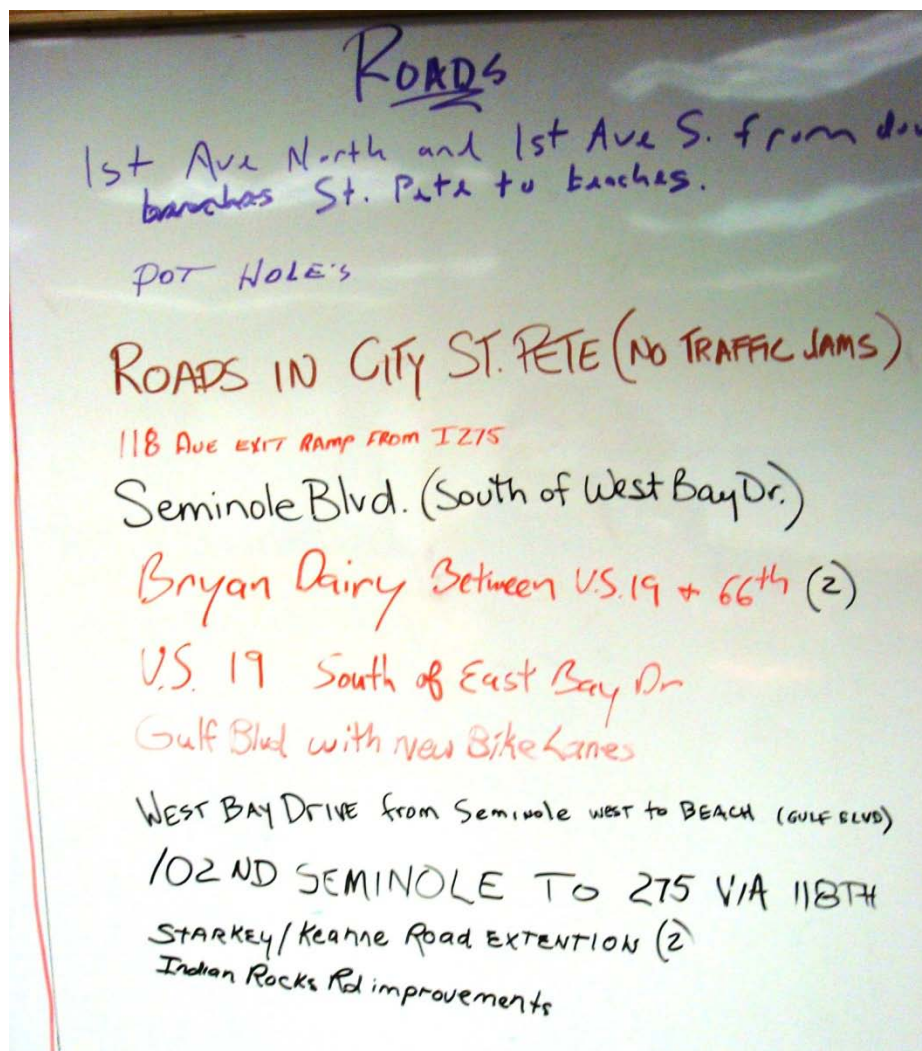 ROADS
1st Ave North and 1st Ave S. from
St. Pete to beaches.
POT HOLE'S
ROADS IN CITY ST. PETE (NO TRAFFIC JAMS)
118 AVE EXIT RAMP FROM I275
Seminole Blvd. (South of West Bay Dr.)
Bryan Dairy Between U.S. 19 + 66th (2)
U.S. 19 South of East Bay Dr
Gulf Blvd with New Bike Lanes
WEST BAY DRIVE from Seminole WEST to BEACH (GULF BLVD)
102 ND SEMINOLE TO 275 VIA 118TH
STARKEY/Keanne Road EXTENTION (2
Indian Rocks Rd improvements